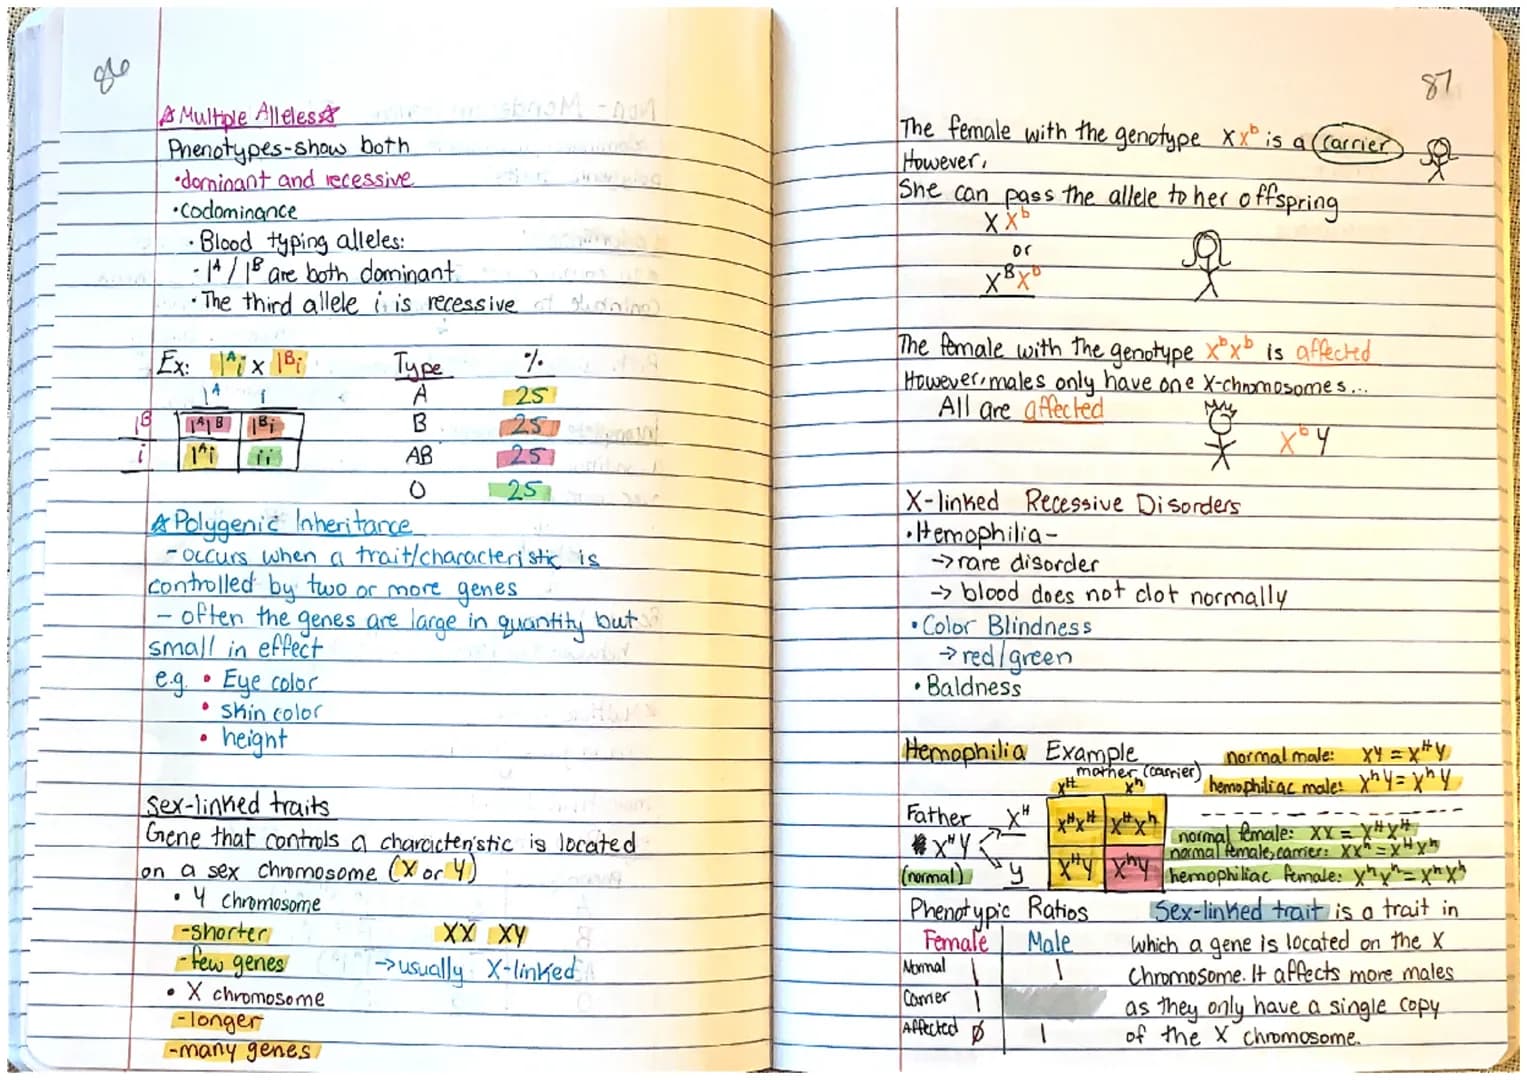 86
☆Multiple Alleles☆
Phenotypes-show both
•dominant and recessive
•Codominance
• Blood typing alleles:
- Iᴬ / Iᴮ are both dominant.
• The third allele i, is recessive
Ex: Iᴬi x Iᴮi
Iᴬ i
Iᴮ IᴬIᴮ Iᴮi
i Iᴬi ii
Type %
A 25
B 25
AB 25
O 25
☆Polygenic Inheritance
-occurs when a trait/characteristic is
controlled by two or more genes
- often the genes are large in quantity but
small in effect
e.g. • Eye color
• skin color
• height
Sex-linked traits
Gene that controls a characteristic is located
on a sex chromosome (X or Y)
• Y chromosome
-shorter
-few genes
XX XY
→usually X-linked
• X chromosome
-longer
-many genes
87
The female with the genotype X Xᵇ is a carrier
However,
She can pass the allele to her offspring
X Xᵇ
or
XᴮXᵇ
The female with the genotype XᵇXᵇ is affected
However, males only have one X-chromosomes...
All are affected
XᵇY
X-linked Recessive Disorders
•Hemophilia-
→rare disorder
→ blood does not clot normally
•Color Blindness
→red/green
•Baldness
Hemophilia Example
mother (carrier)
Xᴴ Xʰ
Father
XᴴY
(normal)
Xᴴ XᴴXᴴ XᴴXʰ
Y XᴴY XʰY
normal male: XY = XᴴY
hemophiliac male: XʰY = XʰY
normal female: XX = XᴴXᴴ
normal female, carrier: XXʰ = XᴴXʰ
hemophiliac female: XʰXʰ = XʰXʰ
Phenotypic Ratios
Female Male
Normal 1 1
Carrier 1
Affected Ø 1
Sex-linked trait is a trait in
which a gene is located on the X
chromosome. It affects more males
as they only have a single copy
of the X chromosome.